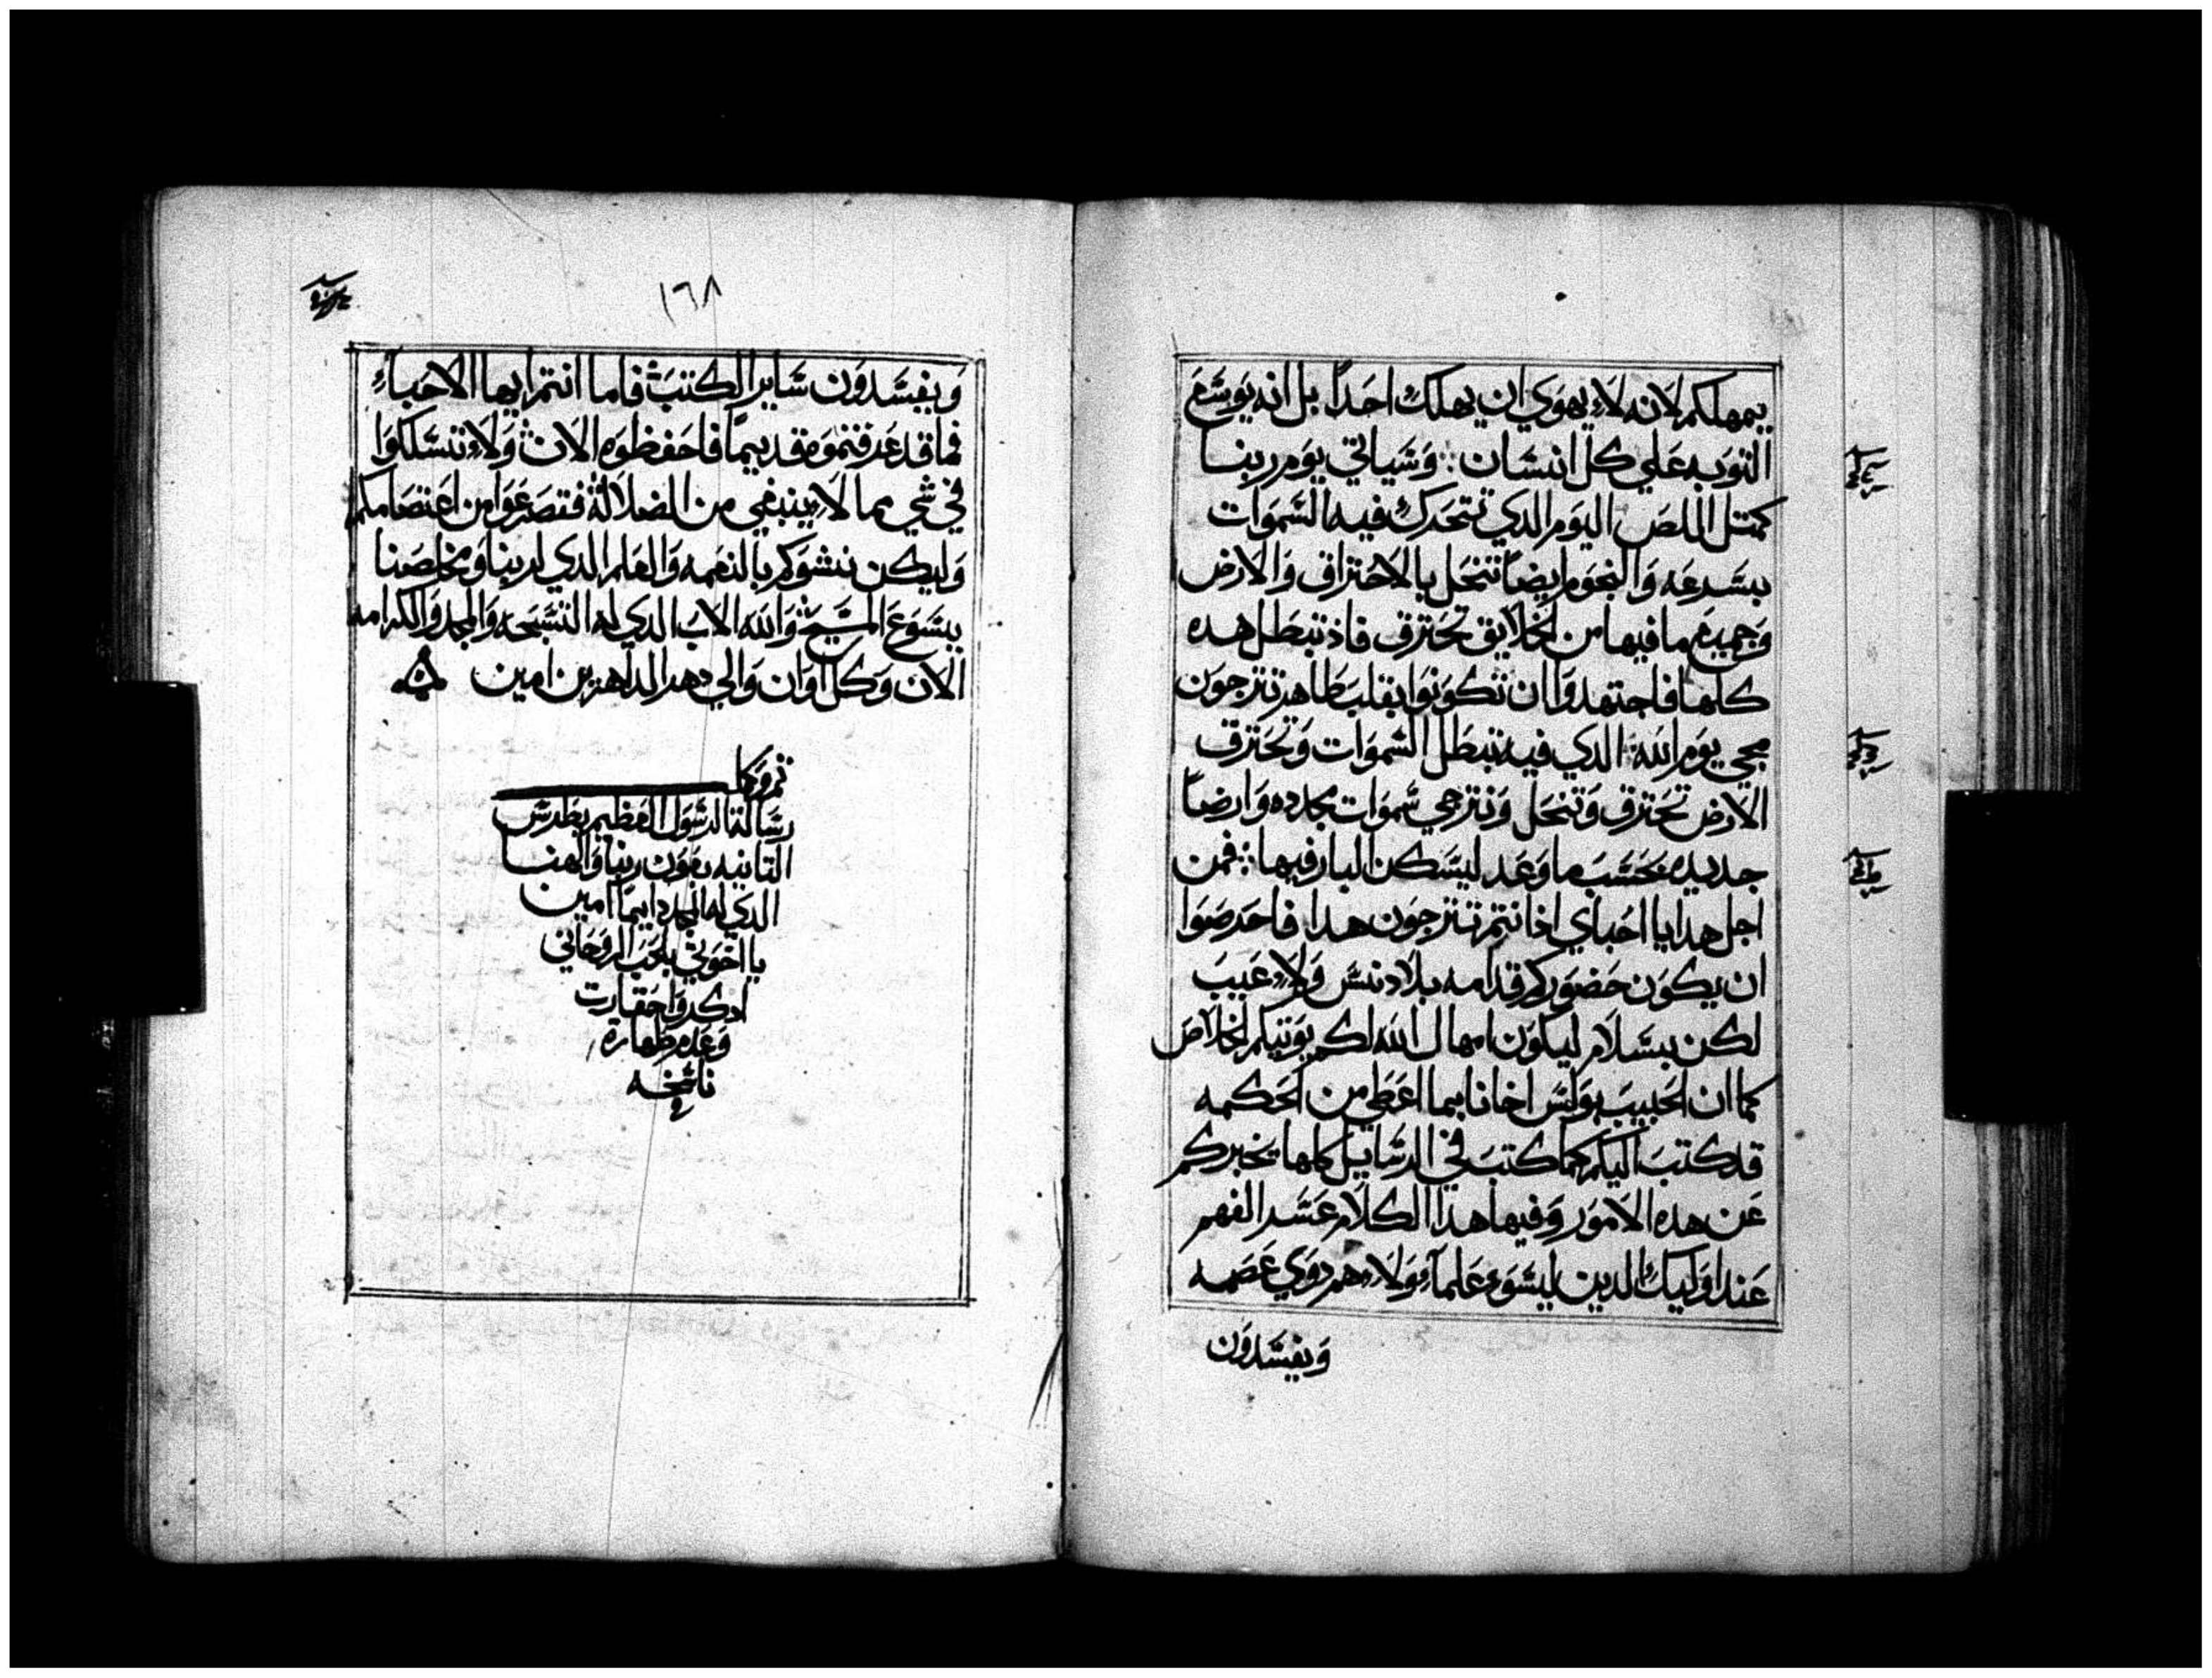 يمهلكم لانه لا يهوي ان يهلك احداً بل انه يوسع
التوبه علي كل انسان وسياتي يوم ربنا
كمتل اللص اليوم الدي تتحرك فيه السموات
بسرعه والنجوم ايضاً تنحل بالاحتراق والارض
وجميع ما فيها من الخلايق تحترق فاذ تبطل هده
كلها فاجتهدوا ان تكونوا بقلب طاهر تترجون
مجي يوم الله الدي فيه تبطل السموات وتحترق
الارض تحترق وتنحل ونترجي سموات مجدده وارضاً
جديده بحسب ما وعد ليسكن البار فيها فمن
اجل هدا يا احباي اذ انتم تترجون هدا فاحرصوا
ان يكون حضوركم قدامه بلا دنس ولا عيب
لكن بسلام ليكون امهال الله لكم يوتيكم الخلاص
كما ان الحبيب بولس اخانا بما اعطي من الحكمه
قد كتب اليكم كما كتب في الرسايل كلها يخبركم
عن هده الامور وفيها هدا الكلام عسر الفهم
عند اوليك الدين ليسوء علماء ولا هم دوي عصمه
ويفسدون
١٦٨
ويفسدون ساير الكتب فاما انتم ايها الاحباء
فما قد عرفتموه قديماً فاحفظوه الان ولا تسلكوا
في شي مما لا ينبغي من الضلالة فتصرعوا من اعتصامكم
وليكن نشوكم بالنعمه والعلم الدي لربنا ومخلصنا
يسوع المسيح والله الاب الدي له التسبحه والمجد والكرامه
الان وكل اوان والي دهر الداهرين امين
تم وكمل
رسالة الرسول العظيم بطرس
التانيه بعون ربنا والهنا
الدي له المجد دايماً امين
يا اخوتي بلحب الروحاني
ادكروا حقارت
وعدم طهارة
ناسخه